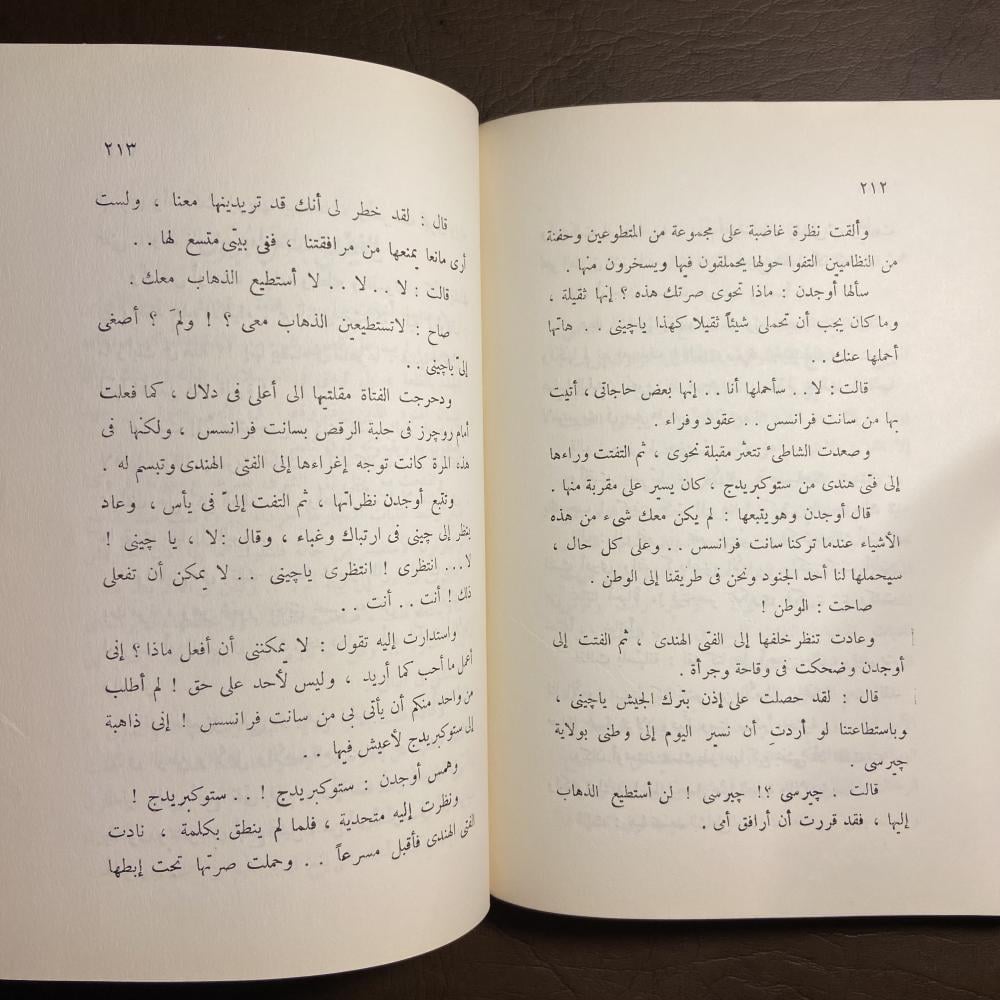 ٢١٢
وألقت نظرة غاضبة على مجموعة من المتطوعين وحفنة
من النظاميين التفوا حولها يحملقون فيها ويسخرون منها .
سألها أوجدن : ماذا تحوى صرتك هذه ؟ إنها ثقيلة ،
وما كان يجب أن تحملى شيئاً ثقيلا كهذا ياچينى . . هاتها
أحملها عنك . .
قالت : لا . . سأحملها أنا . . إنها بعض حاجاتى ، أتيت
بها من سانت فرانسس . . عقود وفراء .
وصعدت الشاطئ تتعثر مقبلة نحوى ، ثم التفتت وراءها
إلى فتى هندى من ستوكبريدج ، كان يسير على مقربة منها .
قال أوجدن وهو يتبعها : لم يكن معك شىء من هذه
الأشياء عندما تركنا سانت فرانسس . . وعلى كل حال ،
سيحملها لنا أحد الجنود ونحن فى طريقنا إلى الوطن .
صاحت : الوطن !
وعادت تنظر خلفها إلى الفتى الهندى ، ثم الفتت إلى
أوجدن وضحكت فى وقاحة وجرأة .
قال : لقد حصلت على إذن بترك الجيش ياچينى ،
وباستطاعتنا لو أردتِ أن نسير اليوم إلى وطنى بولاية
چيرسى .
قالت . چيرسى ؟! چيرسى ! لن أستطيع الذهاب
إليها ، فقد قررت أن أرافق أمى .
٢١٣
قال : لقد خطر لى أنك قد تريدينها معنا ، ولست
أرى مانعا يمنعها من مرافقتنا ، ففى بيتى متسع لها . .
قالت : لا . . لا . . لا أستطيع الذهاب معك .
صاح : لاتستطيعين الذهاب معى ؟ ! ولمَ ؟ أصغى
إلىّ ياچينى . .
ودحرجت الفتاة مقلتيها الى أعلى فى دلال ، كما فعلت
أمام روچرز فى حلبة الرقص بسانت فرانسس ، ولكنها فى
هذه المرة كانت توجه إغراءها إلى الفتى الهندى وتبسم له .
وتتبع أوجدن نظراتها ، ثم التفت إلىّ فى يأس ، وعاد
ينظر إلى چينى فى ارتباك وغباء ، وقال :لا ، يا چينى !
لا... انتظرى ! انتظرى ياچينى . . لا يمكن أن تفعلى
ذلك ! أنت . . أنت . .
واستدارت إليه تقول : لا يمكننى أن أفعل ماذا ؟ إنى
أعمل ما أحب كما أريد ، وليس لأحد على حق ! لم أطلب
من واحد منكم أن يأتى بى من سانت فرانسس ! إنى ذاهبة
إلى ستوكبريدج لأعيش فيها . .
وهمس أوجدن : ستوكبريدج ! . . ستوكبريدج !
ونظرت إليه متحدية ، فلما لم ينطق بكلمة ، نادت
الفتى الهندى فأقبل مسرعاً . . وحملت صرتها تحت إبطها